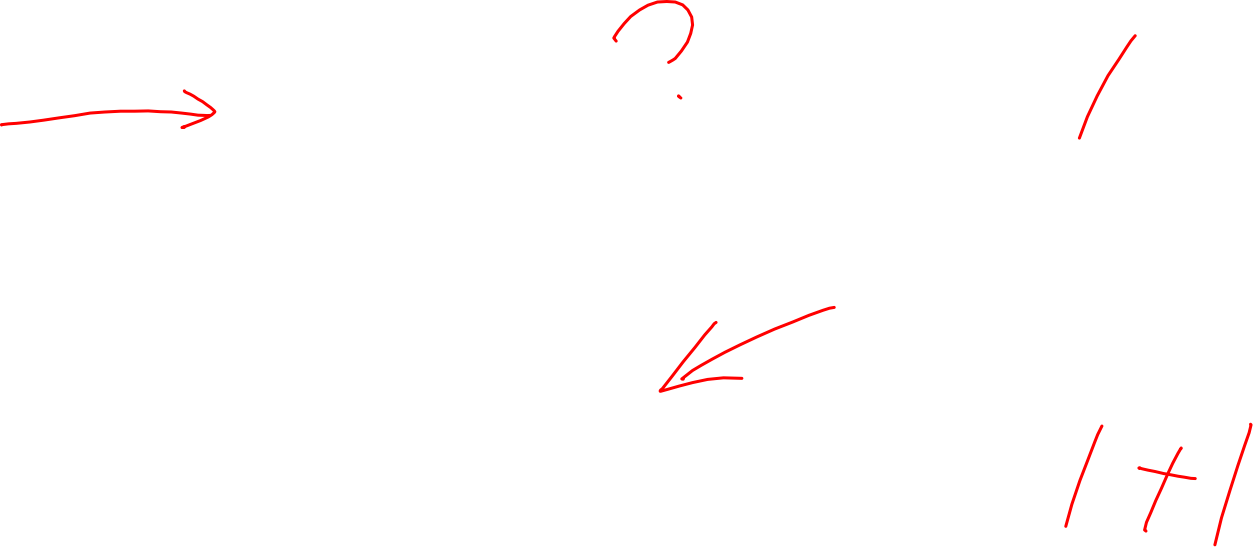 ? 1
1+1